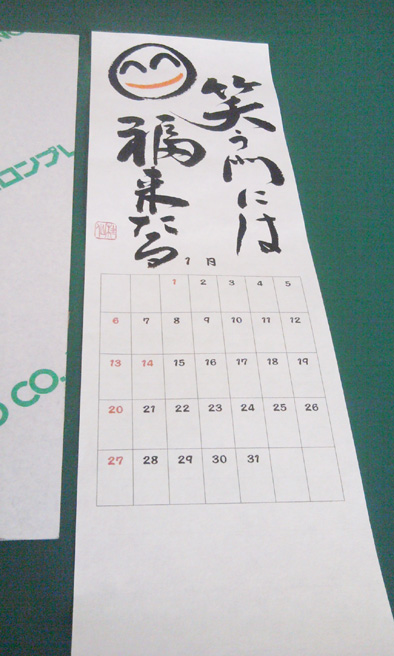 笑う門には
福来たる
1月
1 2 3 4 5
6 7 8 9 10 11 12
13 14 15 16 17 18 19
20 21 22 23 24 25 26
27 28 29 30 31
ロンプレ
CO.